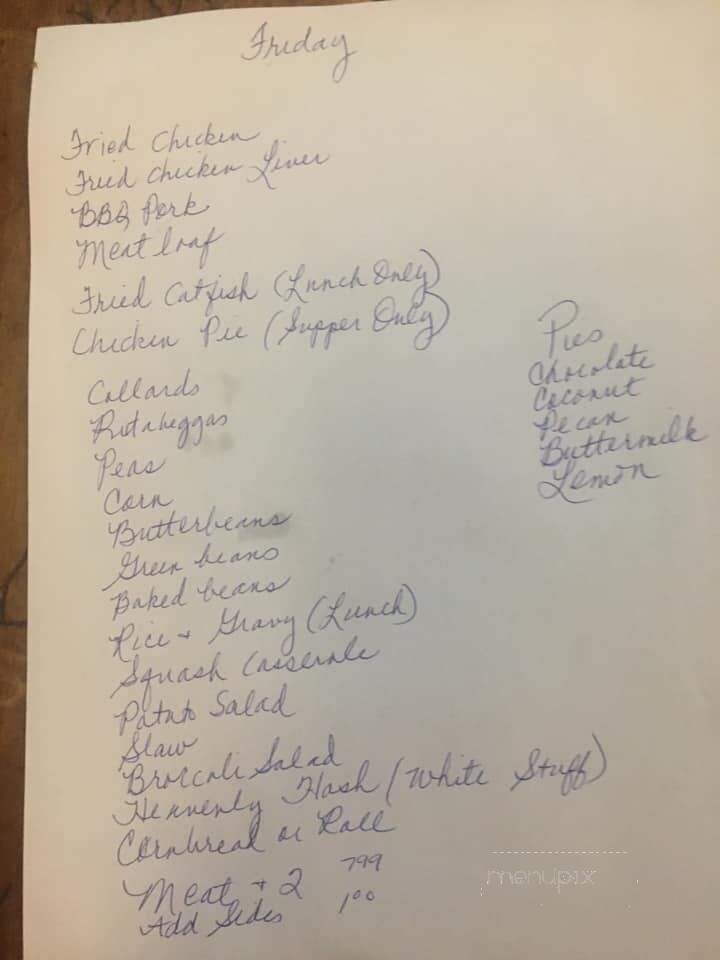 Friday
Fried Chicken
Fried Chicken Liver
BBQ Pork
Meat loaf
Fried Catfish (Lunch Only)
Chicken Pie (Supper Only)
Collards
Rutabeggas
Peas
Corn
Butterbeans
Green beans
Baked beans
Rice + Gravy (Lunch)
Squash Casserole
Potato Salad
Slaw
Broccoli Salad
Heavenly Hash (White Stuff)
Cornbread or Roll
Meat + 2 799
Add Sides 100
Pies
Chocolate
Coconut
Pecan
Buttermilk
Lemon
menupix